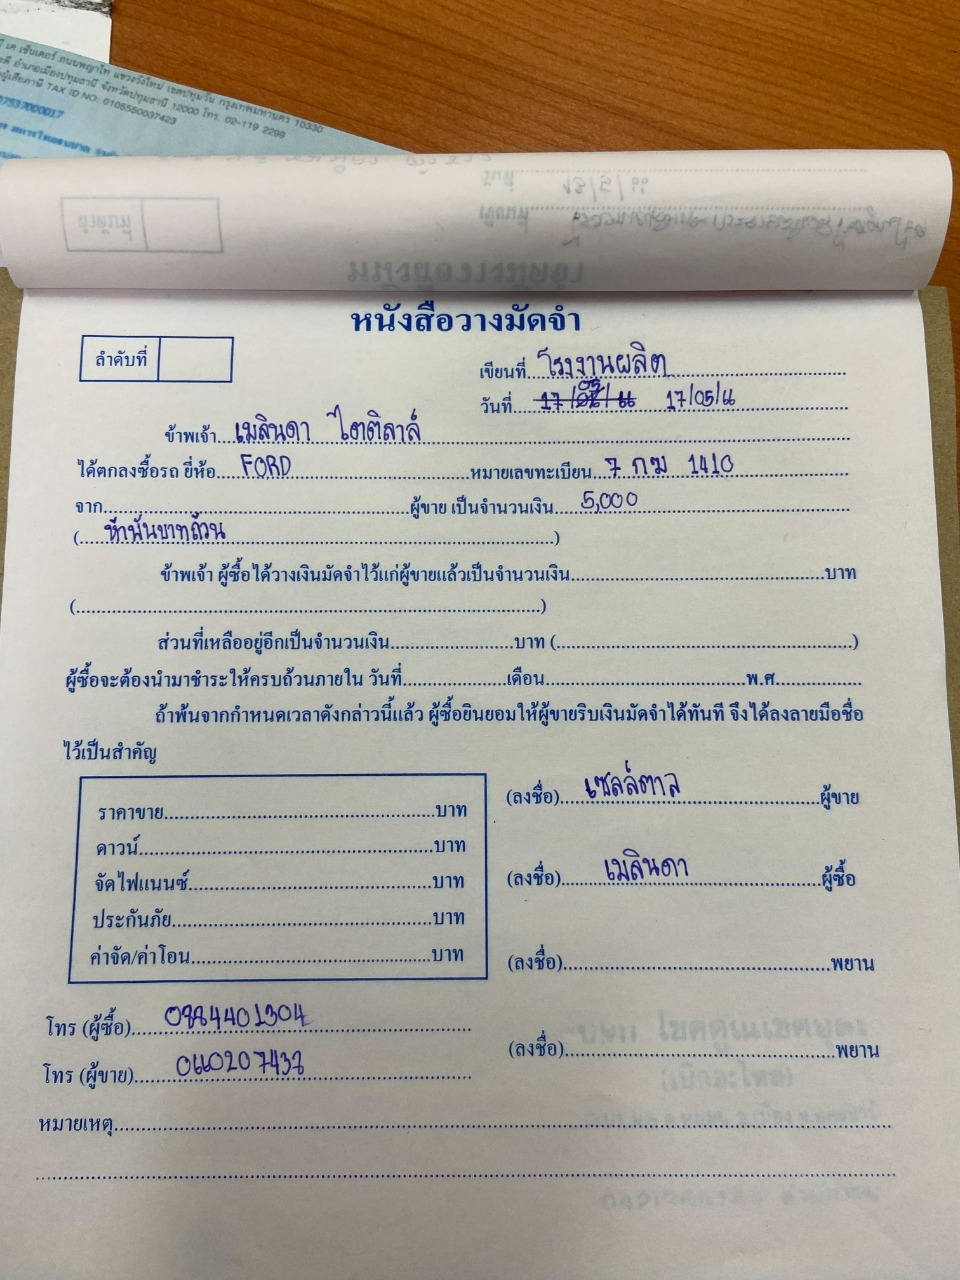 ปี เค เซ็นเตอร์ ถนนพญาไท แขวงวังใหม่ เขตปทุมวัน กรุงเทพมหานคร 10330
อำเภอเมืองปทุมธานี จังหวัดปทุมธานี 12000 โทร. 02-119 2299
ผู้เสียภาษี TAX ID NO. 0105550037423
หนังสือวางมัดจำ
ลำดับที่
เขียนที่ โรงงานผลิต
วันที่ 17/05/61
ข้าพเจ้า เมลินดา ไตติลาล์
ได้ตกลงซื้อรถ ยี่ห้อ FORD หมายเลขทะเบียน 7 กฆ 1410
จาก ผู้ขาย เป็นจำนวนเงิน 5,000
(ห้าพันบาทถ้วน)
ข้าพเจ้า ผู้ซื้อได้วางเงินมัดจำไว้แก่ผู้ขายแล้วเป็นจำนวนเงิน บาท
( )
ส่วนที่เหลืออยู่อีกเป็นจำนวนเงิน บาท ( )
ผู้ซื้อจะต้องนำมาชำระให้ครบถ้วนภายใน วันที่ เดือน พ.ศ.
ถ้าพ้นจากกำหนดเวลาดังกล่าวนี้แล้ว ผู้ซื้อยินยอมให้ผู้ขายริบเงินมัดจำได้ทันที จึงได้ลงลายมือชื่อ
ไว้เป็นสำคัญ
ราคาขาย บาท
ดาวน์ บาท
จัดไฟแนนซ์ บาท
ประกันภัย บาท
ค่าจัด/ค่าโอน บาท
(ลงชื่อ) เซลล์ตาล ผู้ขาย
(ลงชื่อ) เมลินดา ผู้ซื้อ
(ลงชื่อ) พยาน
(ลงชื่อ) พยาน
โทร (ผู้ซื้อ) 0884401304
โทร (ผู้ขาย)
หมายเหตุ